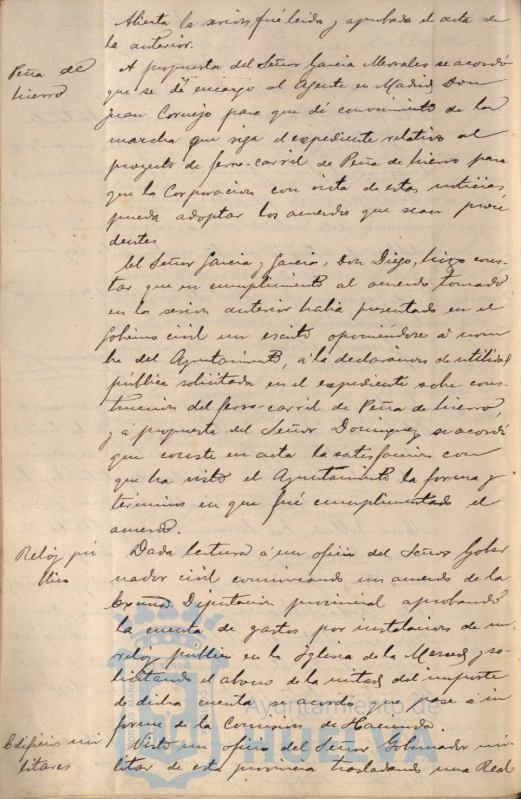 Abierta la sesion fué leida y aprobada el acta de
la anterior.
Peña de
hierro
A propuesta del Señor Garcia Morales se acordó
que se dé encargo al Agente en Madrid Don
Juan Cornejo para que dé conocimiento de la
marcha que siga el expediente relativo al
proyecto de ferro-carril de Peña de hierro para
que la Corporacion con vista de estas noticias
pueda adoptar los acuerdos que sean proce
dentes
El Señor Garcia y Garcia, Don Diego, hizo cons-
tar que en cumplimiento al acuerdo tomado
en la sesion anterior habia presentado en el
Gobierno civil un escrito oponiendose á nom
bre del Ayuntamiento, á la declaracion de utilidad
pública solicitada en el expediente sobre cons-
truccion del ferro-carril de Peña de hierro,
y á propuesta del Señor Dominguez se acordó
que conste en acta la satisfaccion con
que ha visto el Ayuntamiento la forma y
terminos en que fué cumplimentado el
acuerdo.
Reloj pú
blico
Dada lectura á un oficio del Señor Gober
nador civil comunicando un acuerdo de la
Excma. Diputacion provincial aprobando
la cuenta de gastos por instalacion de un
reloj público en la Iglesia de la Merced y so-
licitando el abono de la mitad del importe
de dicha cuenta se acordó pase á in
forme de la Comision de Hacienda.
Edificios mi
litares
Visto un oficio del Señor Gobernador mi-
litar de esta provincia trasladando una Real
Ayuntamiento de
HUELVA